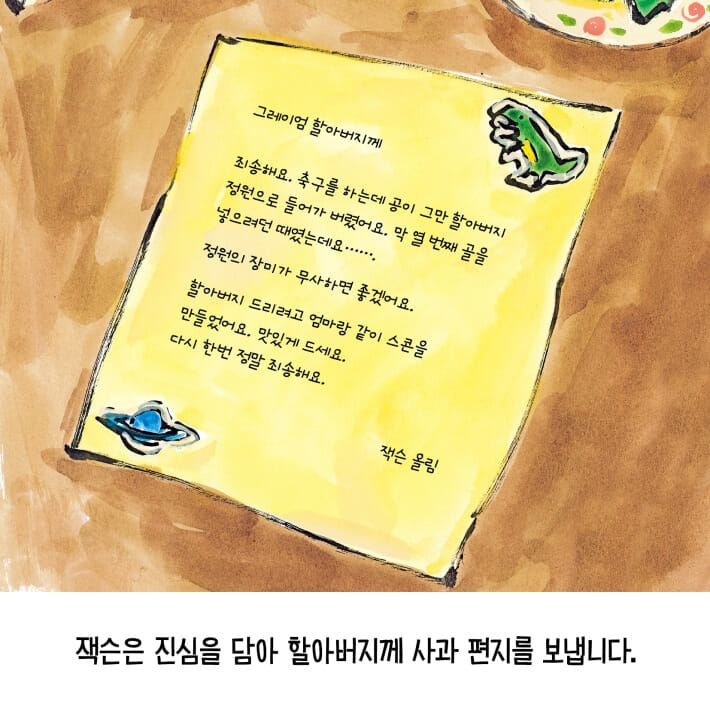 그레이엄 할아버지께
죄송해요. 축구를 하는데 공이 그만 할아버지
정원으로 들어가 버렸어요. 막 열 번째 골을
넣으려던 때였는데요…….
정원의 장미가 무사하면 좋겠어요.
할아버지 드리려고 엄마랑 같이 스콘을
만들었어요. 맛있게 드세요.
다시 한번 정말 죄송해요.
잭슨 올림
잭슨은 진심을 담아 할아버지께 사과 편지를 보냅니다.